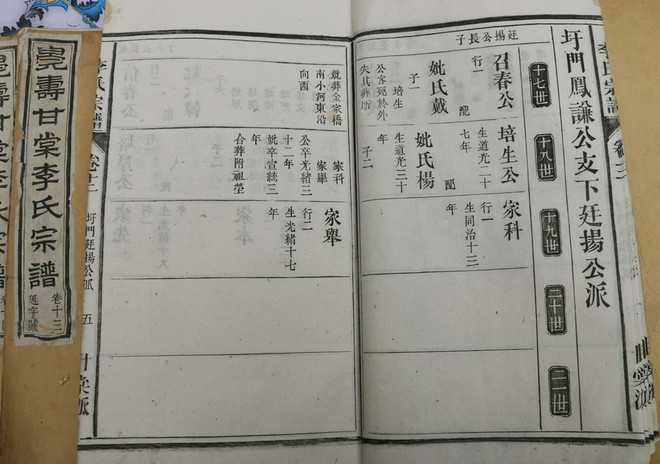 圩門鳳謙公支下廷揚公派
十七世
十八世
十九世
二十世
二一世
廷揚公長子
召春公
配
妣氏戴
子一
培生
公客死於外
失其葬坊
就葬金家橋
南小河東沿
向西
培生公
行一
生道光二十
七年
配
妣氏楊
生道光三十
年
子二
家科
家舉
公卒光緒三
十二年
妣卒宣統三
年
合葬附祖塋
家科
行一
生同治十三
年
家舉
行二
生光緒十七
年
圩門廷揚公派
五
壽甘棠李氏宗譜
卷十三